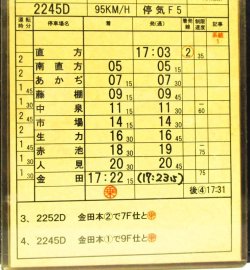 2245D 95KM/H 停気F5
運転時分 停車場名 着 発(通) 着発線 制限速度 記事
直方 17:03 ② 系統1
2 南直方 05 05 35
2 あかぢ 07 15 07 15
1 藤棚 09 09
2 中泉 11 15 11 15 ④60
2 市場 14 14
2 生力 16 30 16 30
1 赤池 18 18 45
2 人見 20 30 20 30
2 金田 17:22 15 (17:23 15) 35
後④17:31
3、2252D 金田本②で7F仕と
4、2245D 金田本①で9F仕と